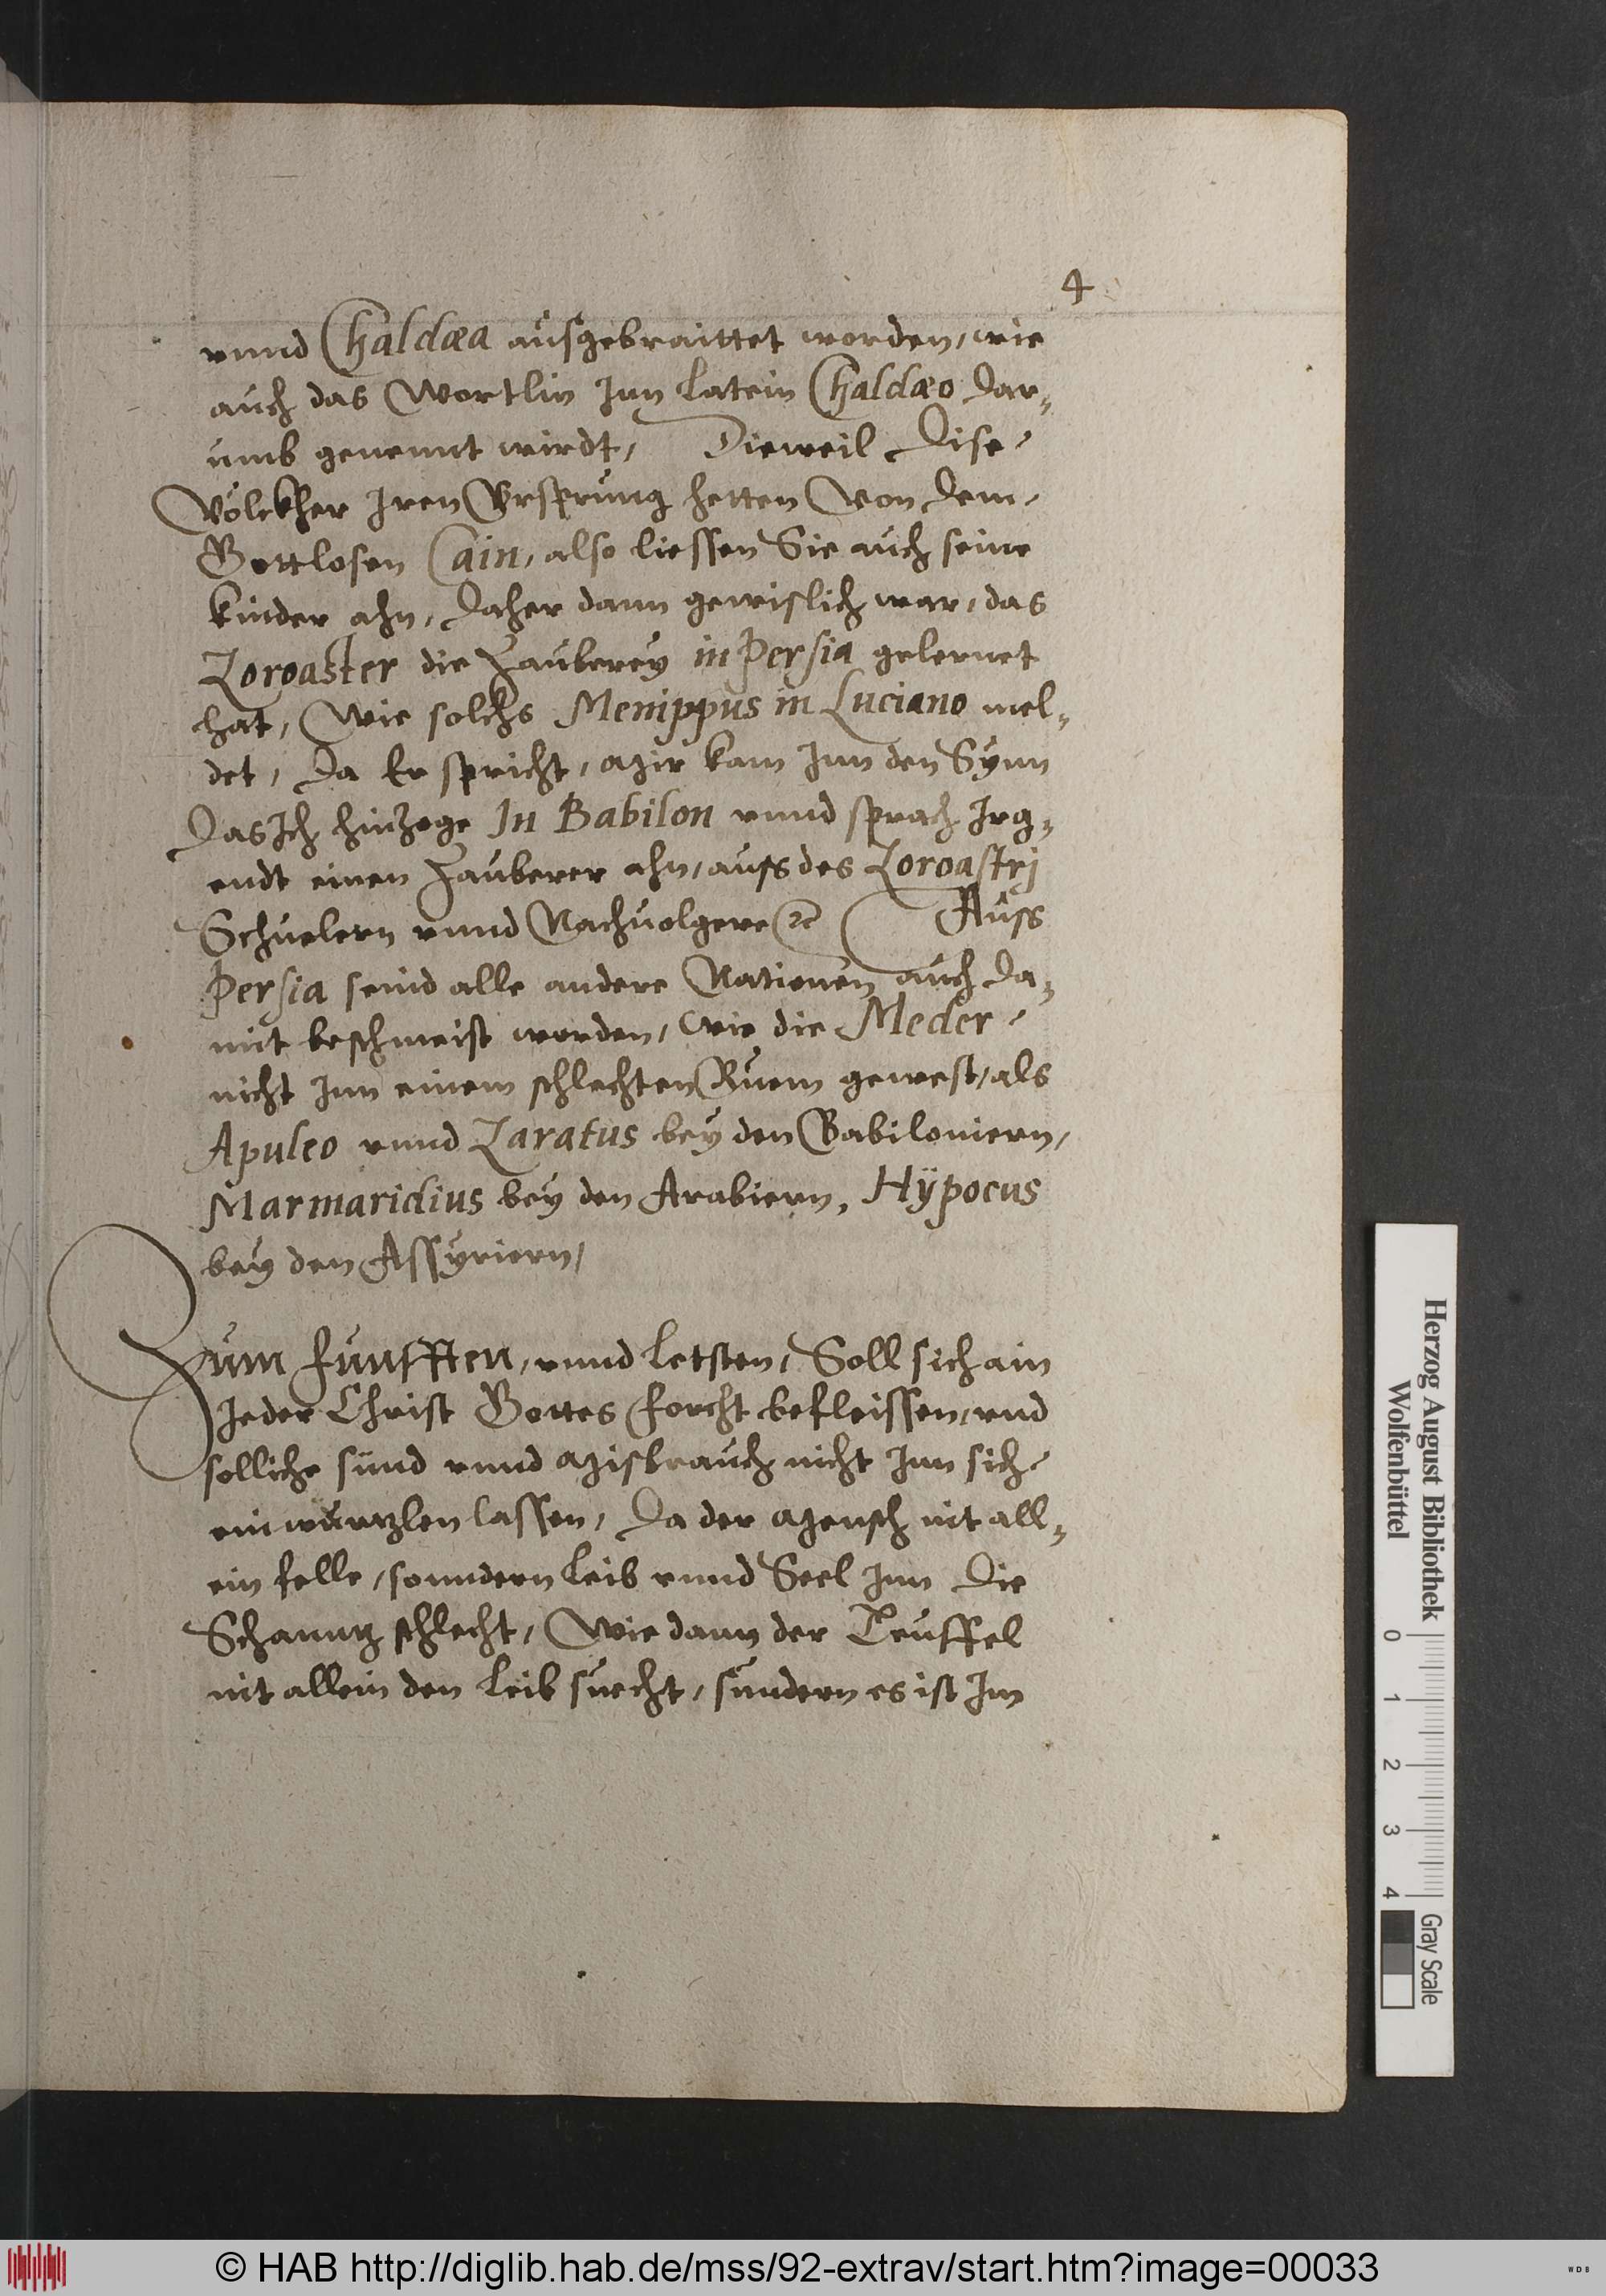 4
vnnd Chaldæa außgebraittet worden, wie
auch das Wortlin Jnn Latein Chaldæo dar„
umb genennt wirdt, Dieweil dise
Völckher Jren Vrsprung hetten Von dem
Gottlosen Cain, also liessen Sie auch seine
kinder ahn, daher dann gewißlich war, das
Zoroaster die Zauberey in Persia gelernet
hat, Wie solchs Menippus in Luciano mel„
det, da Er spricht, Mir kam Jnn den Synn
das Jch hinzoge In Babilon vnnd sprach Jrg„
endt einen Zauberer ahn, auß des Zoroastrj
Schuelern vnnd Nachuolgere ꝛc Auß
Persia seind alle andere Nationen auch da„
mit beschmeist worden, Wie die Meder
nicht Jnn einem schlechten Ruem gewest, als
Apuleo vnnd Zaratus bey den Babiloniern,
Marmaridius bey den Arabiern, Hÿpocus
bey den Assyriern,
Zum Funfften, vnnd letsten, Soll sich ain
Jeder Christ Gottes forcht befleissen, vnd
solliche sünd vnnd Mißbrauch nicht Jnn sich
einwurtzlen lassen, da der Mensch nit all„
ein felle, sonndern Leib vnnd Seel Jnn die
Schanntz schlecht, Wie dann der Teuffel
nit allein den Leib suecht, sundern es ist Jm
Herzog August Bibliothek
Wolfenbüttel
0 1 2 3 4
Gray Scale
© HAB http://diglib.hab.de/mss/92-extrav/start.htm?image=00033
WDB